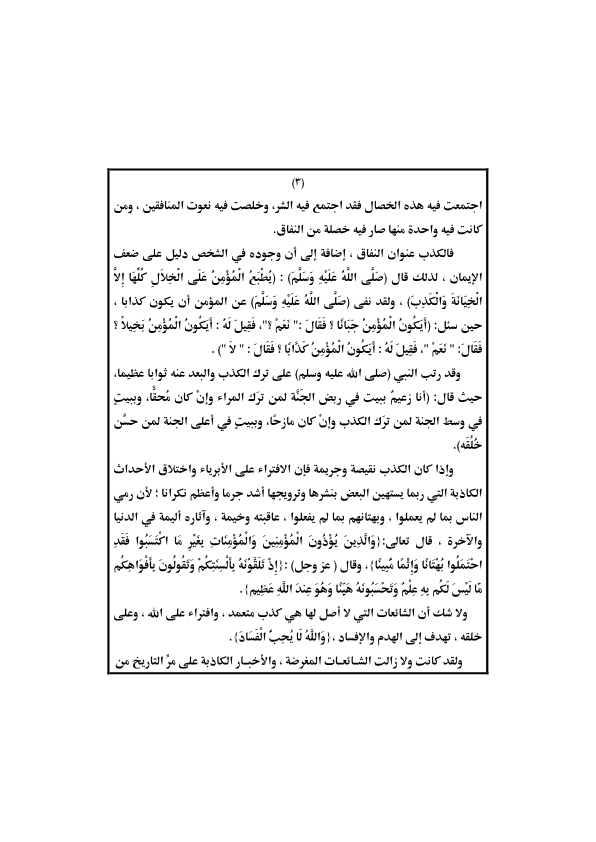 (٣)
اجتمعت فيه هذه الخصال فقد اجتمع فيه الشر، وخلصت فيه نعوت المنافقين ، ومن
كانت فيه واحدة منها صار فيه خصلة من النفاق.
فالكذب عنوان النفاق ، إضافة إلى أن وجوده في الشخص دليل على ضعف
الإيمان ، لذلك قال (صَلَّى اللَّهُ عَلَيْهِ وَسَلَّمَ) : (يُطْبَعُ الْمُؤْمِنُ عَلَى الْخِلَالِ كُلِّهَا إِلاَّ
الْخِيَانَةَ وَالْكَذِبَ) ، ولقد نفى (صَلَّى اللَّهُ عَلَيْهِ وَسَلَّمَ) عن المؤمن أن يكون كذابا ،
حين سئل: (أَيَكُونُ الْمُؤْمِنُ جَبَانًا ؟ فَقَالَ :" نَعَمْ ؟"، فَقِيلَ لَهُ : أَيَكُونُ الْمُؤْمِنُ بَخِيلاً ؟
فَقَالَ: " نَعَمْ "، فَقِيلَ لَهُ : أَيَكُونُ الْمُؤْمِنُ كَذَّابًا ؟ فَقَالَ : " لاَ ") .
وقد رتب النبي (صلى الله عليه وسلم) على ترك الكذب والبعد عنه ثوابا عظيما،
حيث قال: (أنا زعيمٌ ببيت في ربض الجَنَّة لمن ترَك المراء وإنْ كان مُحقًّا، وببيتٍ
في وسط الجنة لمن ترَك الكذب وإنْ كان مازحًا، وببيتٍ في أعلى الجنة لمن حسَّن
خُلُقَه).
وإذا كان الكذب نقيصة وجريمة فإن الافتراء على الأبرياء واختلاق الأحداث
الكاذبة التي ربما يستهين البعض بنشرها وترويجها أشد جرما وأعظم نكرانا ؛ لأن رمي
الناس بما لم يعملوا ، وبهتانهم بما لم يفعلوا ، عاقبته وخيمة ، وآثاره أليمة في الدنيا
والآخرة ، قال تعالى:{وَالَّذِينَ يُؤْذُونَ الْمُؤْمِنِينَ وَالْمُؤْمِنَاتِ بِغَيْرِ مَا اكْتَسَبُوا فَقَدِ
احْتَمَلُوا بُهْتَانًا وَإِثْمًا مُبِينًا}، وقال ( عز وجل) :{إِذْ تَلَقَّوْنَهُ بِأَلْسِنَتِكُمْ وَتَقُولُونَ بِأَفْوَاهِكُم
مَّا لَيْسَ لَكُم بِهِ عِلْمٌ وَتَحْسَبُونَهُ هَيِّنًا وَهُوَ عِندَ اللَّهِ عَظِيم}.
ولا شك أن الشائعات التي لا أصل لها هي كذب متعمد ، وافتراء على الله ، وعلى
خلقه ، تهدف إلى الهدم والإفساد ،{وَاللَّهُ لَا يُحِبُّ الْفَسَادَ}.
ولقد كانت ولا زالت الشائعات المغرضة ، والأخبار الكاذبة على مرِّ التاريخ من